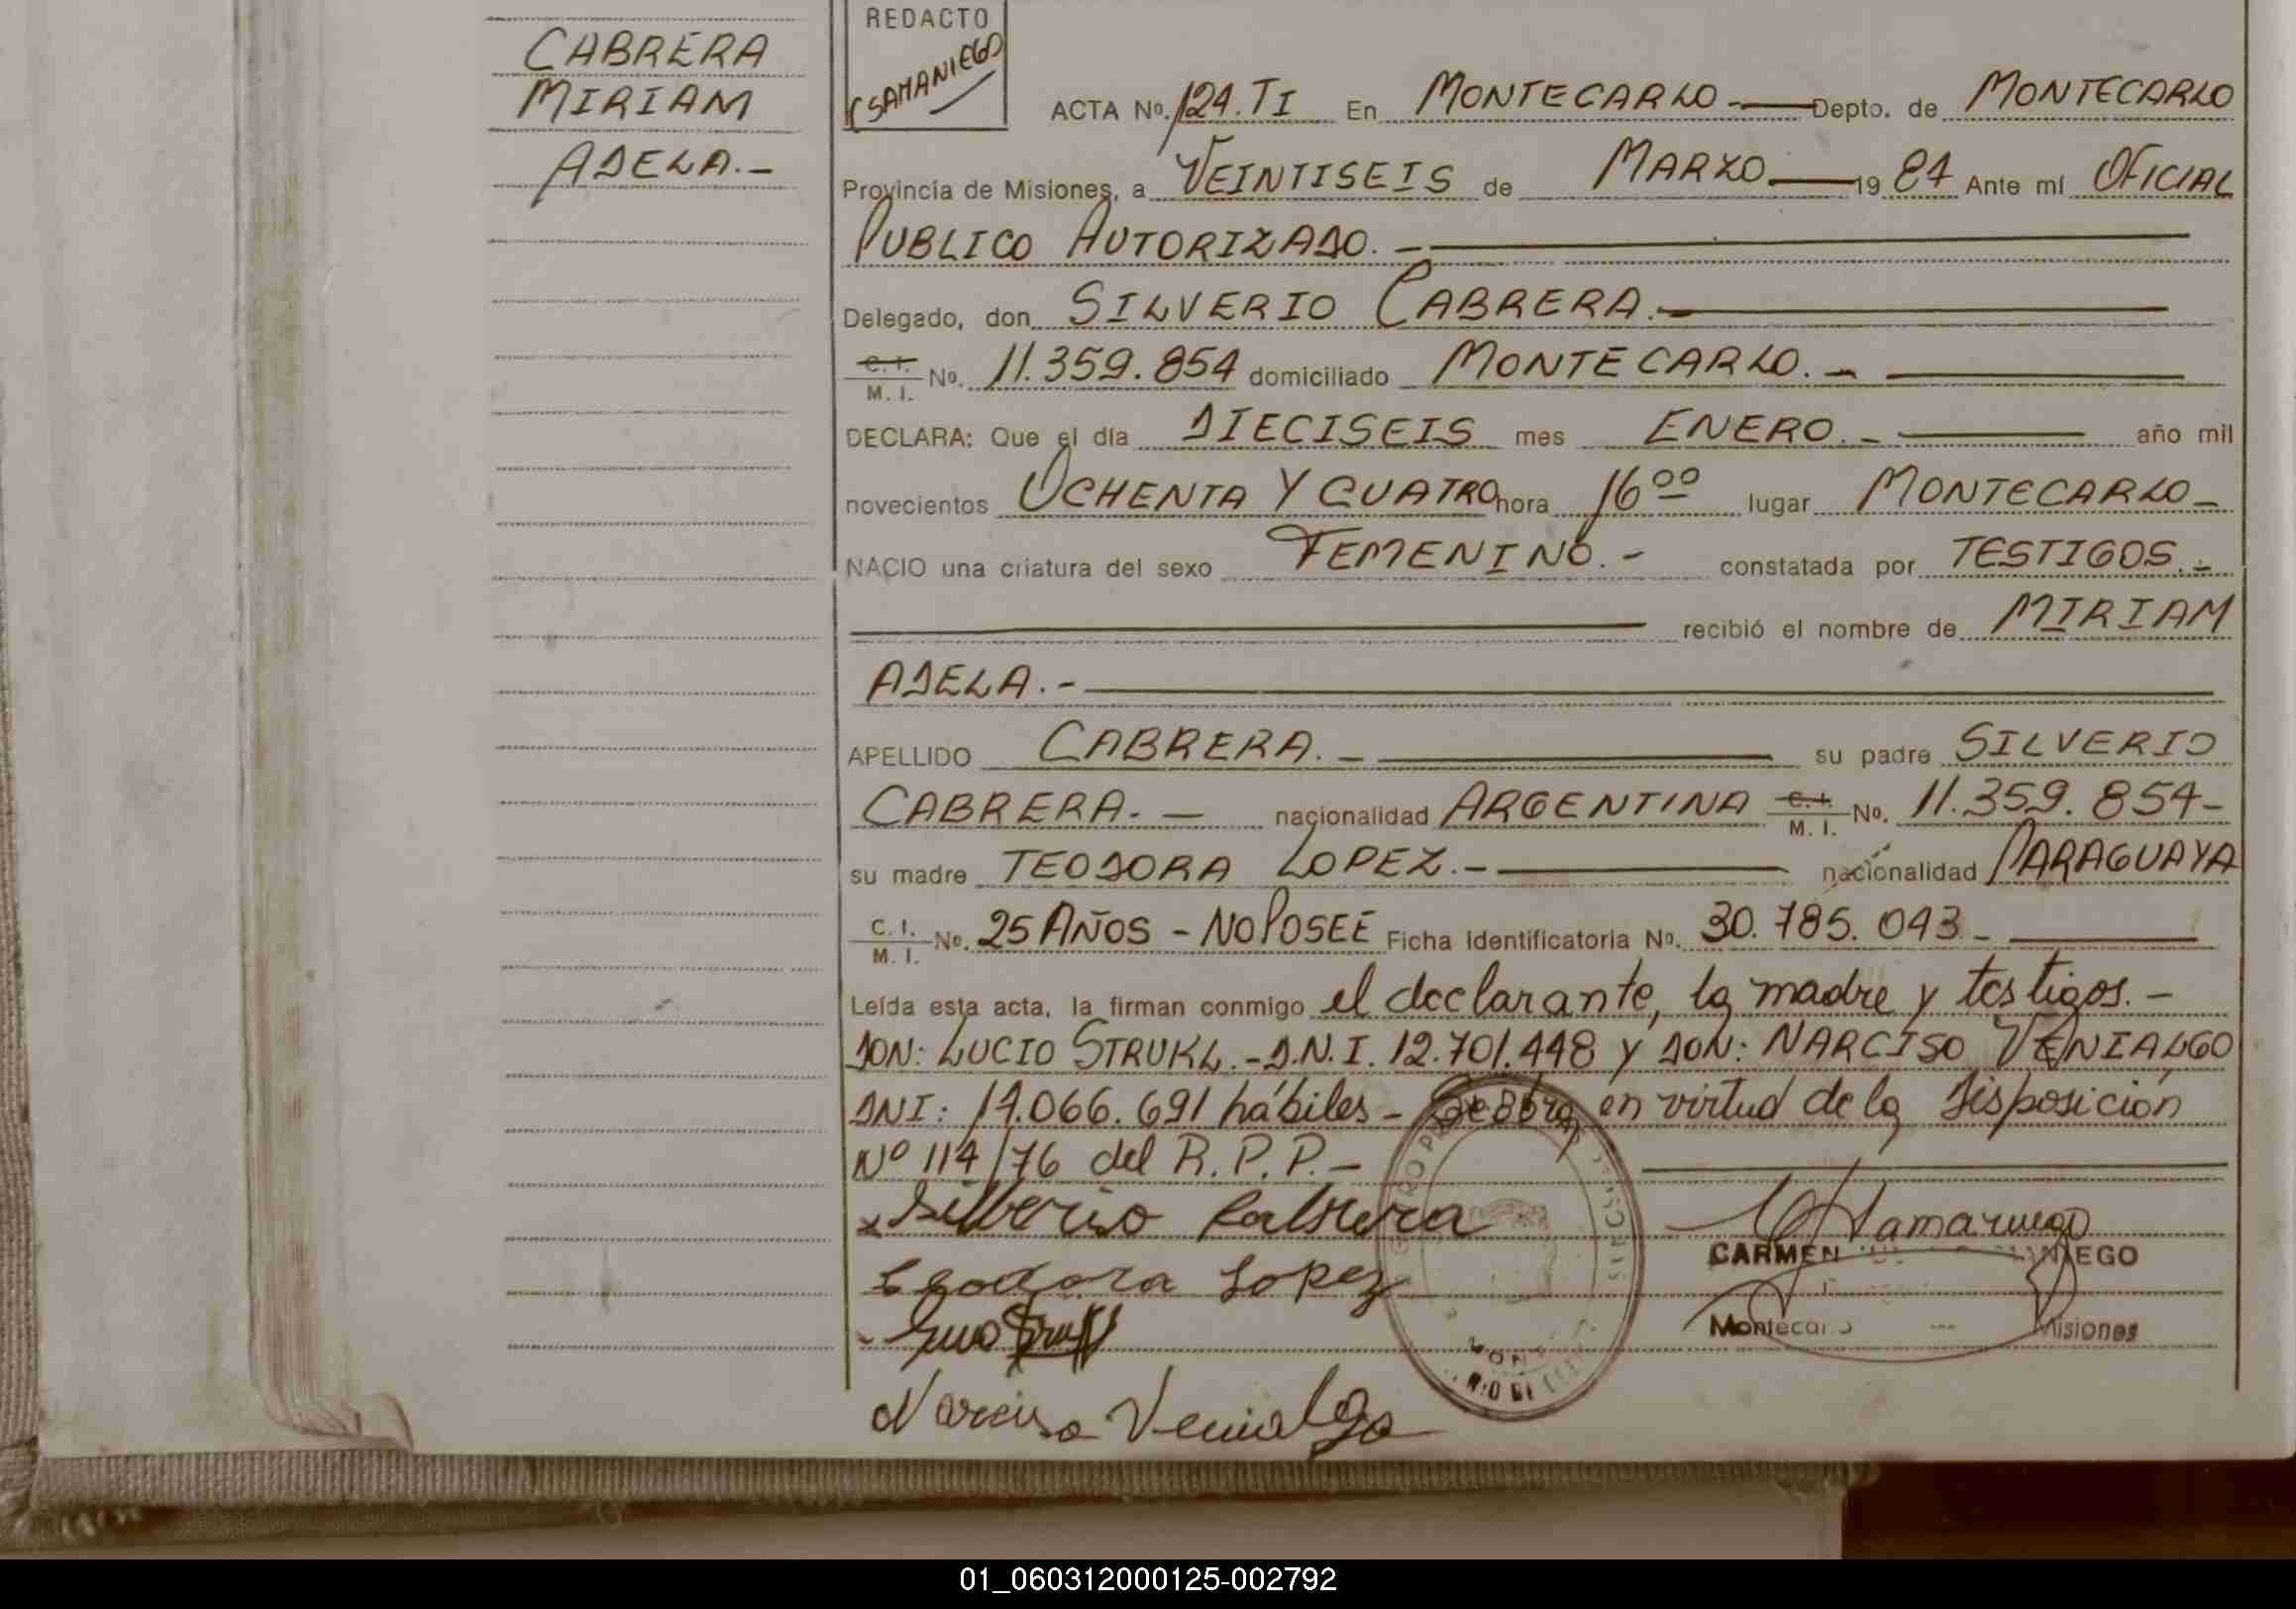 CABRERA
MIRIAM
ADELA.-
REDACTO
CSAMANIEGO
ACTA Nº. 124. TI En MONTECARLO.- Depto. de MONTECARLO
Provincia de Misiones, a VEINTISEIS de MARZO 19 84 Ante mí OFICIAL
PUBLICO AUTORIZADO.-
Delegado, don SILVERIO CABRERA.-
C. I. / M. I. Nº. 11.359.854 domiciliado MONTECARLO.-
DECLARA: Que el día DIECISEIS mes ENERO.- año mil
novecientos OCHENTA Y CUATRO hora 16ºº lugar MONTECARLO-
NACIO una criatura del sexo FEMENINO.- constatada por TESTIGOS.-
recibió el nombre de MIRIAM
ADELA.-
APELLIDO CABRERA.- su padre SILVERIO
CABRERA.- nacionalidad ARGENTINA C. I. / M. I. Nº. 11.359.854-
su madre TEODORA LOPEZ.- nacionalidad PARAGUAYA
C. I. / M. I. Nº. 25 AÑOS - NO POSEE Ficha Identificatoria Nº. 30.785.043-
Leída esta acta, la firman conmigo el declarante, la madre y testigos.-
DON: LUCIO STRUKL.- D.N.I. 12.701.448 y DON: NARCISO VENIALGO
DNI: 14.066.691 hábiles- en virtud de la Disposición
Nº 114/76 del R.P.P.-
Silverio Cabrera
CARMEN
Teodora Lopez
Montecarlo Misiones
Narciso Venialgo
01_060312000125-002792